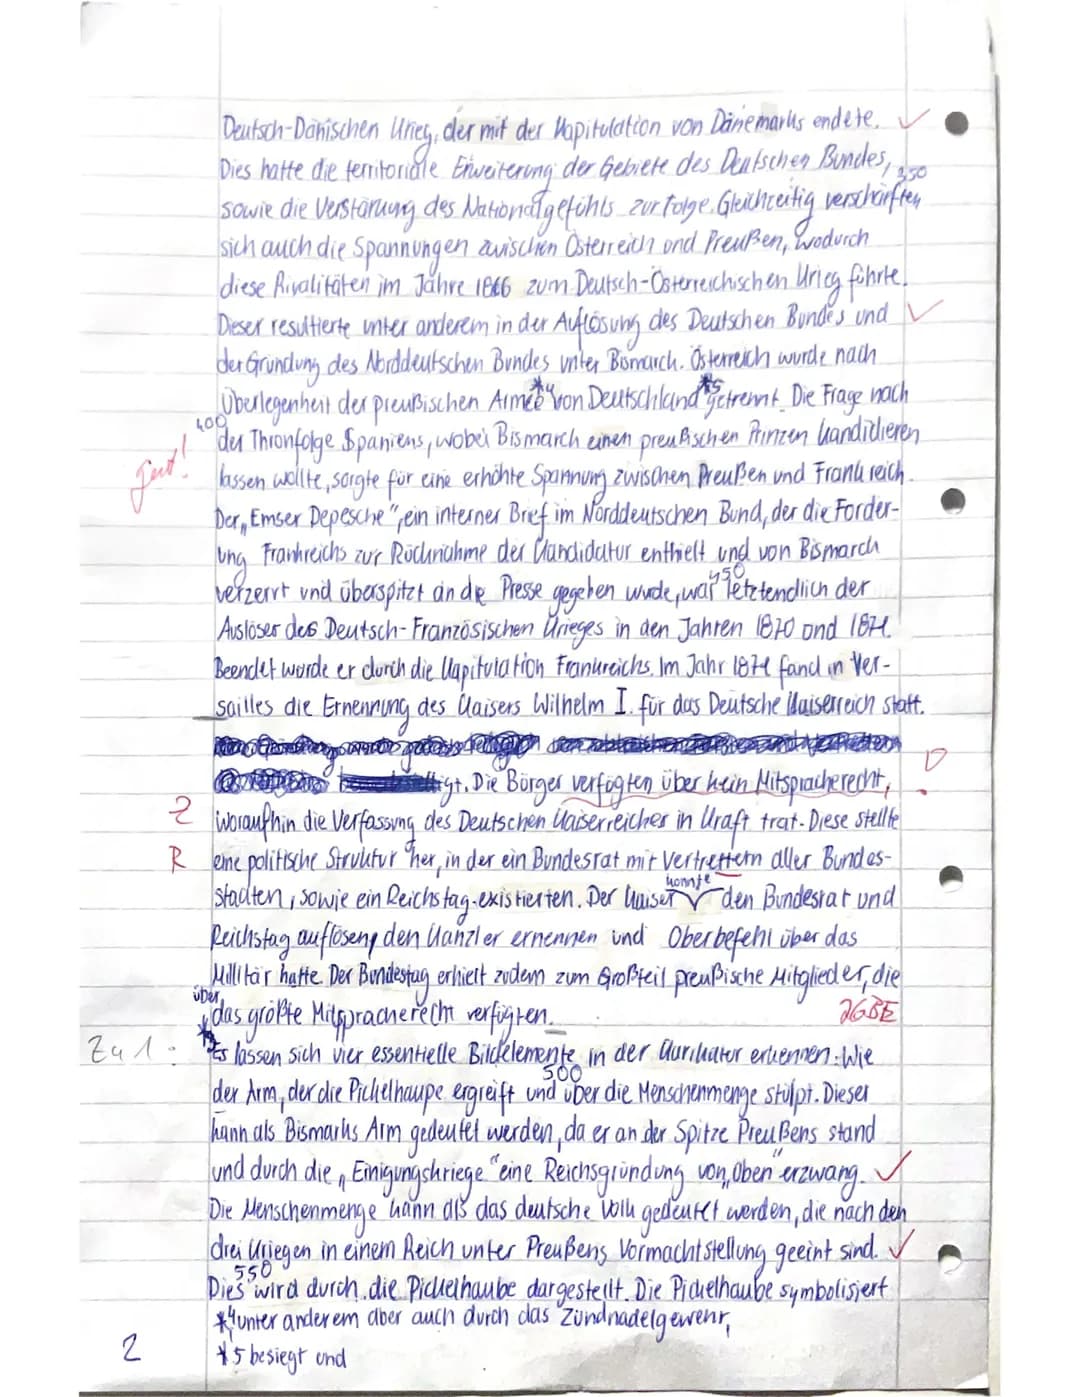 Deutsch-Dänischen Krieg, der mit der Kapitulation von Dänemarks endete.
Dies hatte die territoriale Erweiterung der Gebiete des Deutschen Bundes,
350
sowie die Verstärung des Nationalgefühls zur Folge. Gleichzeitig verschärften
sich auch die Spannungen zwischen Österreich und Preußen, wodurch
diese Rivalitäten im Jahre 1866 zum Deutsch-Österreichischen Krieg führte.
Dieser resultierte unter anderem in der Auflösung des Deutschen Bundes und
der Gründung des Norddeutschen Bundes unter Bismarck. Österreich wurde nach
Überlegenheit der preußischen Armee *4 von Deutschland *5 getrennt. Die Frage nach
400
der Thronfolge Spaniens, wobei Bismarck einen preußischen Prinzen kandidieren
gut!
lassen wollte, sorgte für eine erhöhte Spannung zwischen Preußen und Frankreich.
Der „Emser Depesche", ein interner Brief im Norddeutschen Bund, der die Forder-
ung Frankreichs zur Rücknahme der Kandidatur enthielt und von Bismarck
450
verzerrt und überspitzt an die Presse gegeben wurde, war letztendlich der
Auslöser des Deutsch-Französischen Krieges in den Jahren 1870 und 1871.
Beendet wurde er durch die Kapitulation Frankreichs. Im Jahr 1871 fand in Ver-
sailles die Ernennung des Kaisers Wilhelm I. für das Deutsche Kaiserreich statt.
tigt. Die Bürger verfügten über kein Mitspracherecht,
Z woraufhin die Verfassung des Deutschen Kaiserreiches in Kraft trat. Diese stellte
R eine politische Struktur her, in der ein Bundesrat mit Vertrettern aller Bundes-
staaten, sowie ein Reichstag existierten. Der Kaiser konnte den Bundesrat und
Reichstag auflösen, den Kanzler ernennen und Oberbefehl über das
Millitär hatte. Der Bundestag erhielt zudem zum Großteil preußische Mitglieder, die
über das größte Mitspracherecht verfügten.
Zu 1: Es lassen sich vier essentielle Bildelemente in der Karikatur erkennen: Wie
500
der Arm, der die Pickelhaupe ergreift und über die Menschenmenge stülpt. Dieser
kann als Bismarks Arm gedeutet werden, da er an der Spitze Preußens stand
und durch die „Einigungskriege" eine Reichsgründung von „Oben" erzwang.
Die Menschenmenge kann als das deutsche Volk gedeutet werden, die nach den
drei Kriegen in einem Reich unter Preußens Vormachtstellung geeint sind.
550
Dies wird durch die Pickelhaube dargestellt. Die Pickelhaube symbolisiert
*4 unter anderem aber auch durch das Zündnadelgewehr,
*5 besiegt und
2